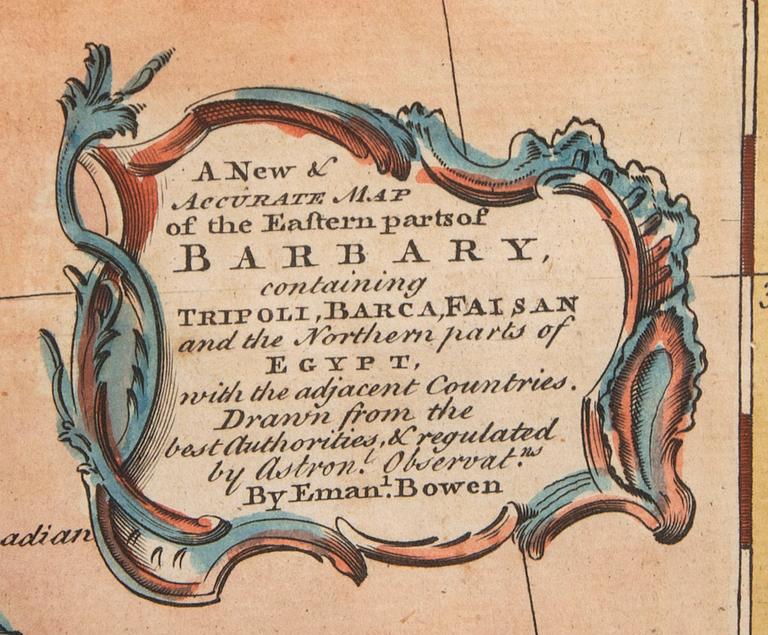 A New &
ACCURATE MAP
of the Eaſtern parts of
BARBARY,
containing
TRIPOLI, BARCA, FAISAN
and the Northern parts of
EGYPT,
with the adjacent Countries.
Drawn from the
best Authorities, & regulated
by Astron.l Observat.ns
By Eman.l Bowen
adian
3